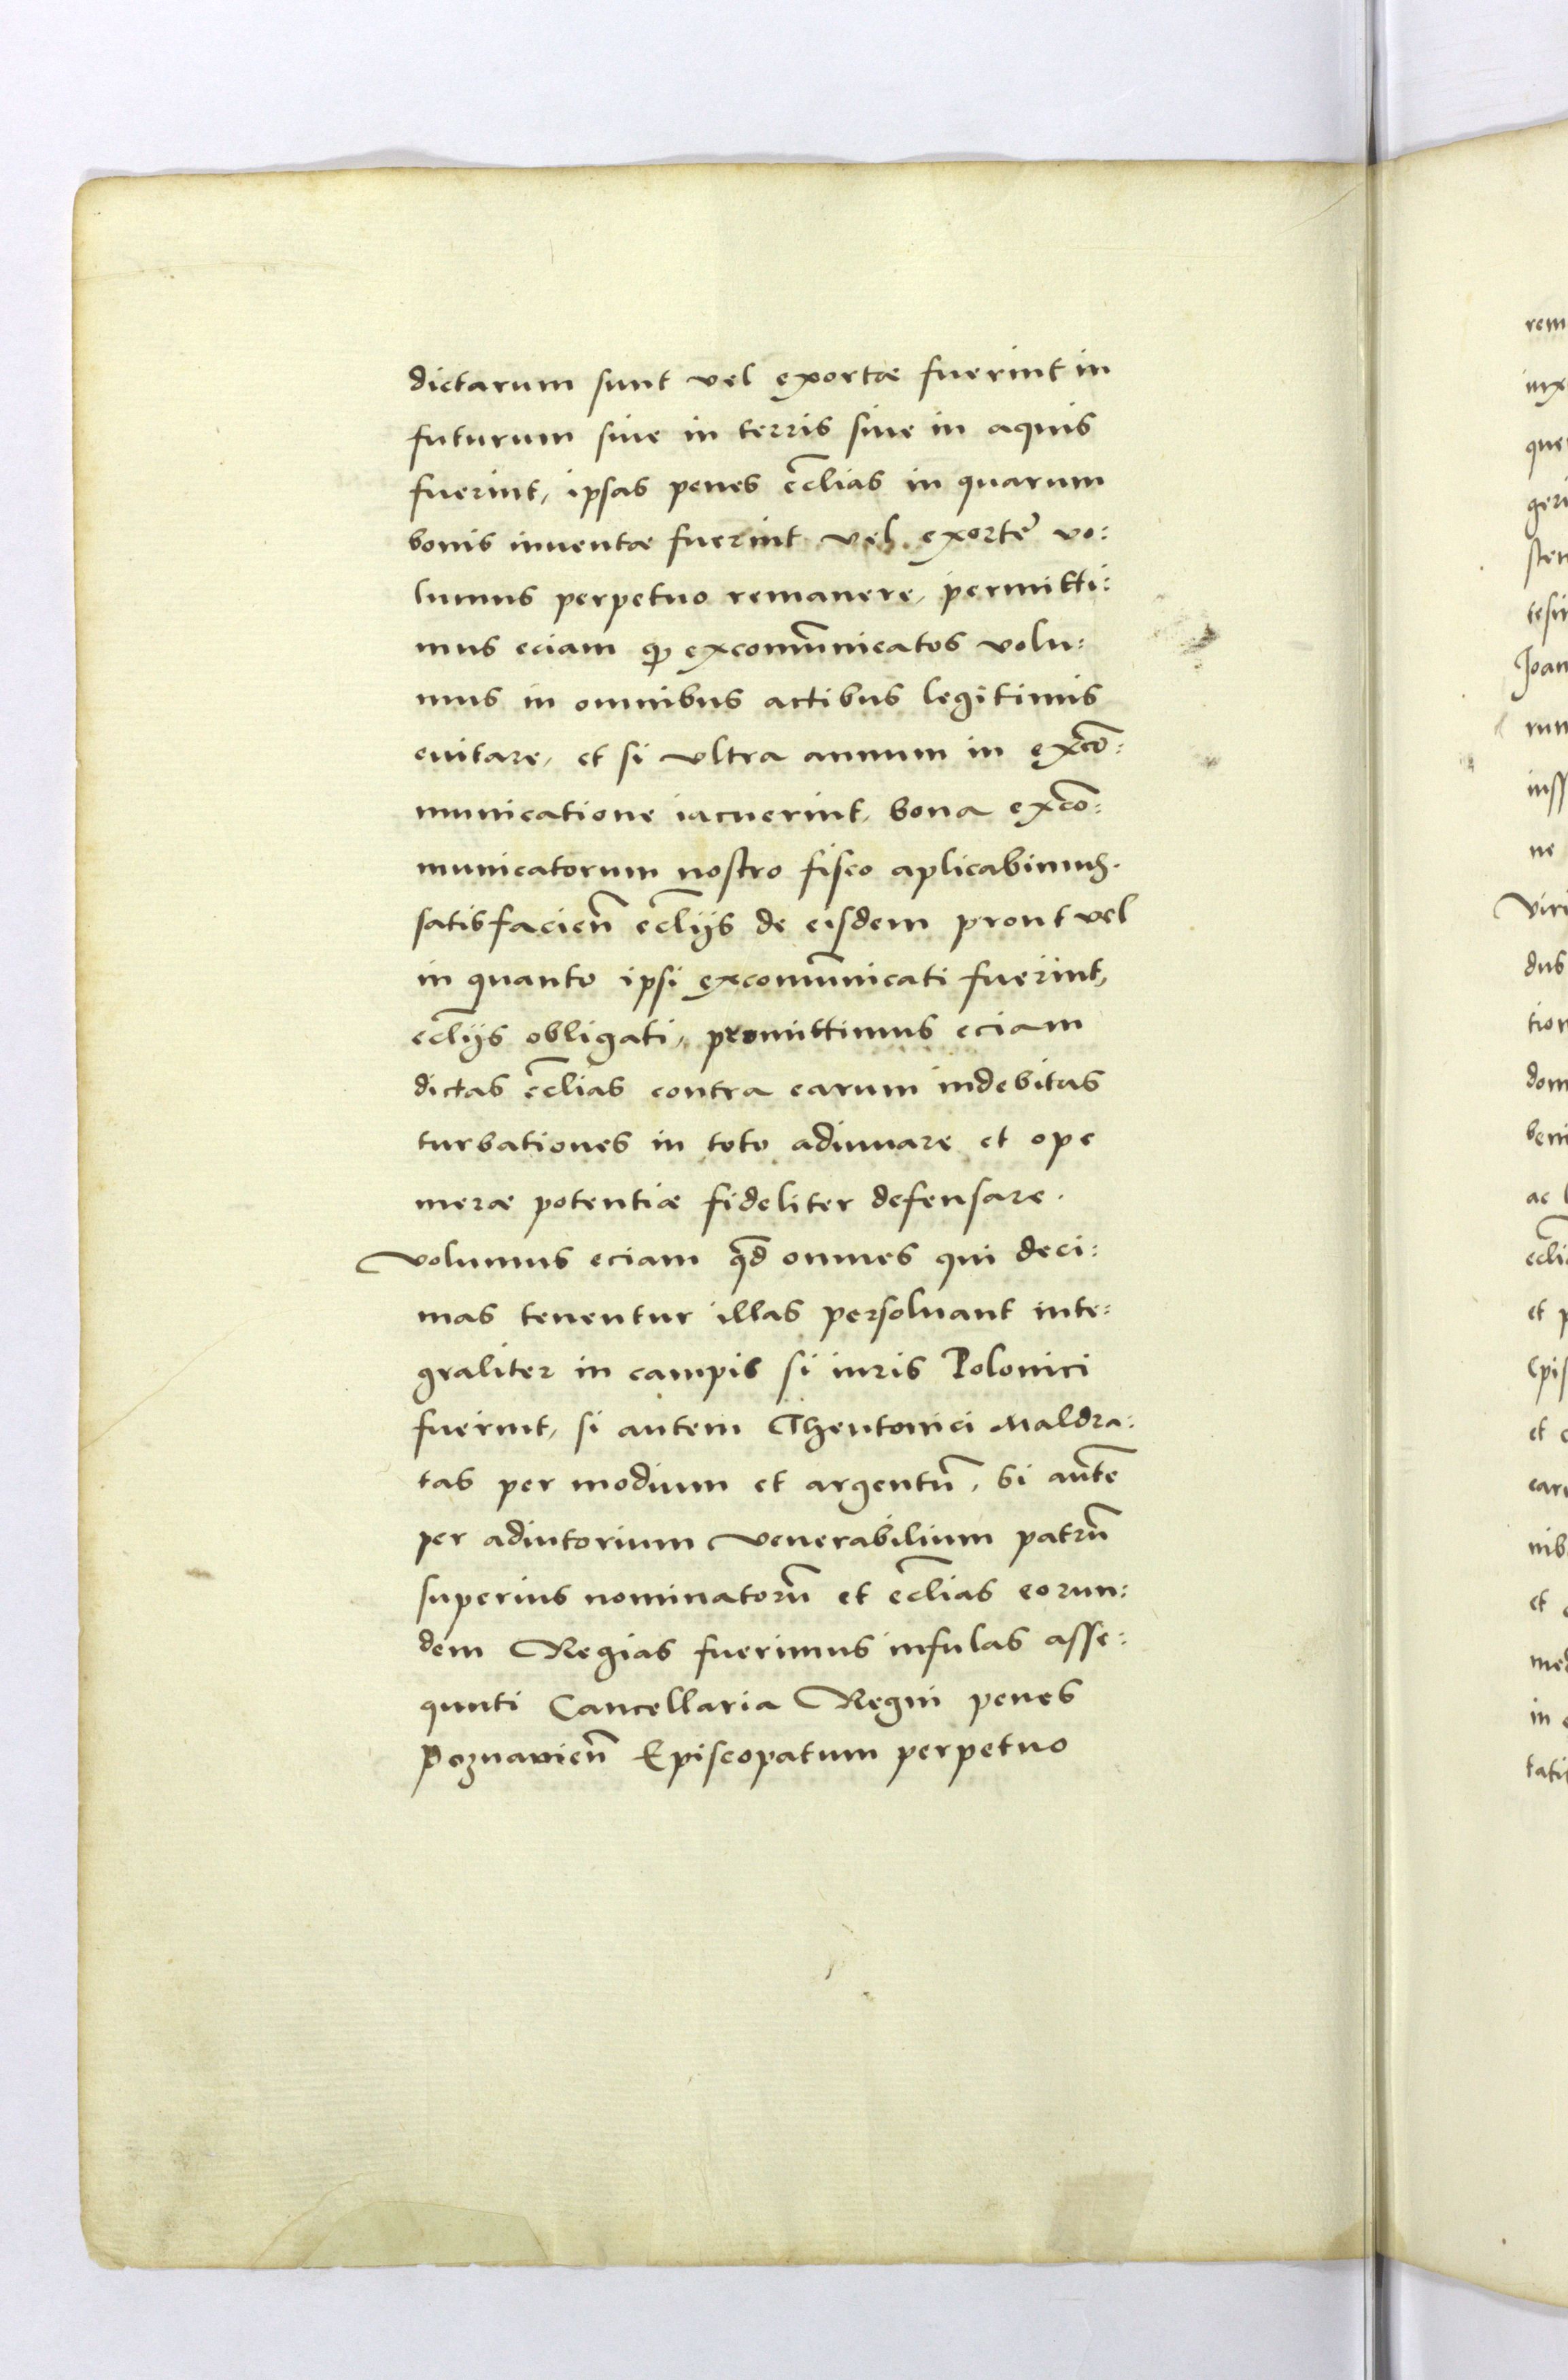 dictarum sunt vel exortæ fuerint in
futurum siue in terris siue in aquis
fuerint, ipsas penes ecc̄lias in quarum
bonis inuentæ fuerint vel exorte vo:
lumus perpetuo remanere, permitti:
mus eciam ꝙ excom̄unicatos volu:
mus in omnibus actibus legitimis
euitare, et si vltra annum in exco̅:
municatione iacuerint, bona exco̅:
municatorum nostro fisco aplicabimus.
satisfacien̄ ecc̄lijs de eisdem prout vel
in quanto ipsi excom̄unicati fuerint,
ecc̄lijs obligati, promittimus eciam
dictas ecc̄lias contra earum indebitas
turbationes in toto adiuuare et ope
meræ potentiæ fideliter defensare.
volumus eciam qd̄ omnes qui deci:
mas tenentur illas persoluant inte:
graliter in campis si iuris Polonici
fuerint, si autem Theutonici Maldra:
tas per modium et argentū, si autē
per adiutorium venerabilium patrū
superius nominatorū et ecc̄lias eorun:
dem Regias fuerimus infulas asse:
quuti Cancellaria Regni penes
Poznanien̄ Episcopatum perpetuo
rem
que
geri
tesi
Joan
rum
ne
viri
dus
tion
dom
beni
ac
et p
et
nib
et
in
tati